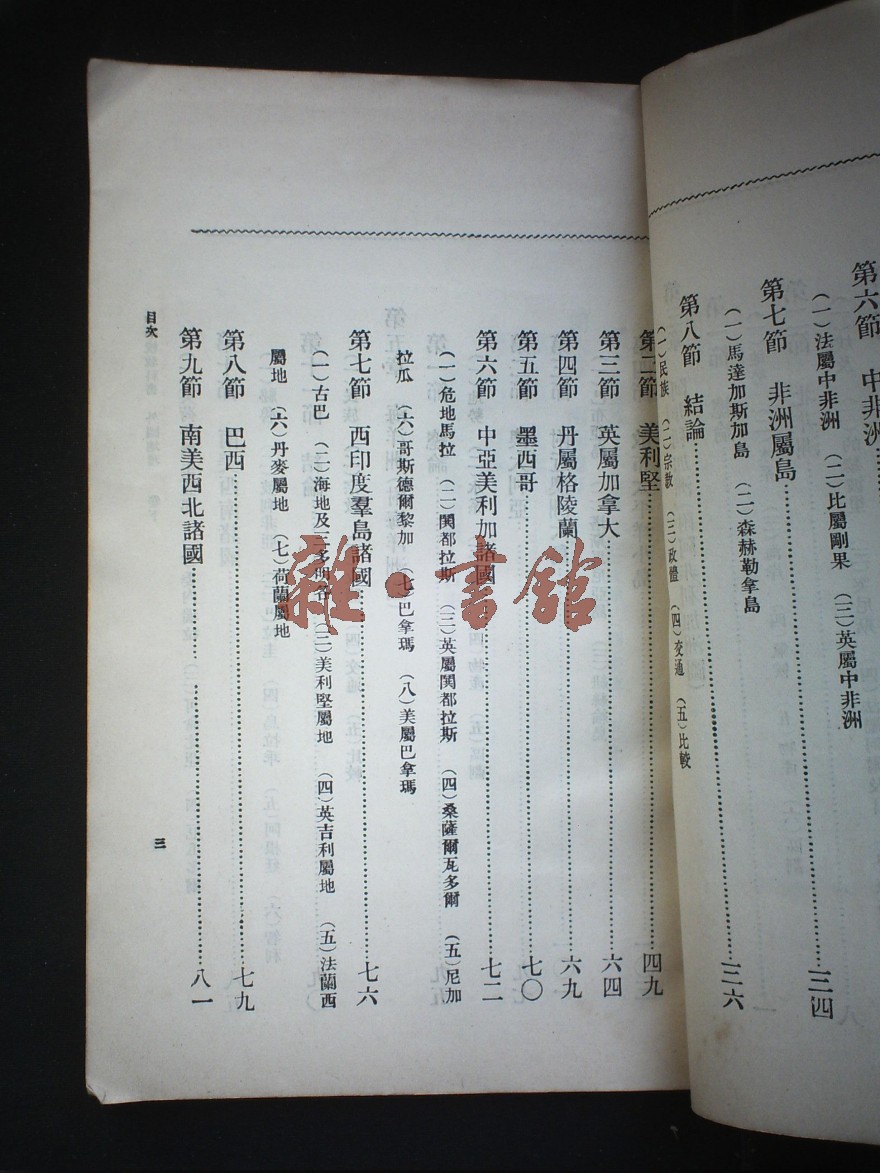 第六節　中非洲……三四
（一）法屬中非洲　（二）比屬剛果　（三）英屬中非洲
第七節　非洲屬島……三六
（一）馬達加斯加島　（二）森赫勒拿島
第八節　結論
（一）民族　（二）宗教　（三）政體　（四）交通　（五）比較
第二節　美利堅……四九
第三節　英屬加拿大……六四
第四節　丹屬格陵蘭……六九
第五節　墨西哥……七〇
第六節　中亞美利加諸國……七二
（一）危地馬拉　（二）閧都拉斯　（三）英屬閧都拉斯　（四）桑薩爾瓦多爾　（五）尼加
拉瓜　（六）哥斯德爾黎加　（七）巴拿瑪　（八）美屬巴拿瑪
第七節　西印度羣島諸國……七六
（一）古巴　（二）海地及三多明各　（三）美利堅屬地　（四）英吉利屬地　（五）法蘭西
屬地　（六）丹麥屬地　（七）荷蘭屬地
第八節　巴西……七九
第九節　南美西北諸國……八一
目次
三
雜·書館